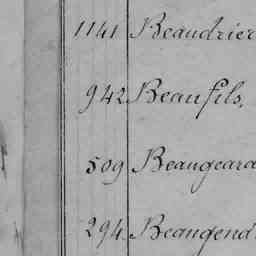 1141 Beaudrier
942 Beaufils.
509 Beaugeard
294 Beaugend